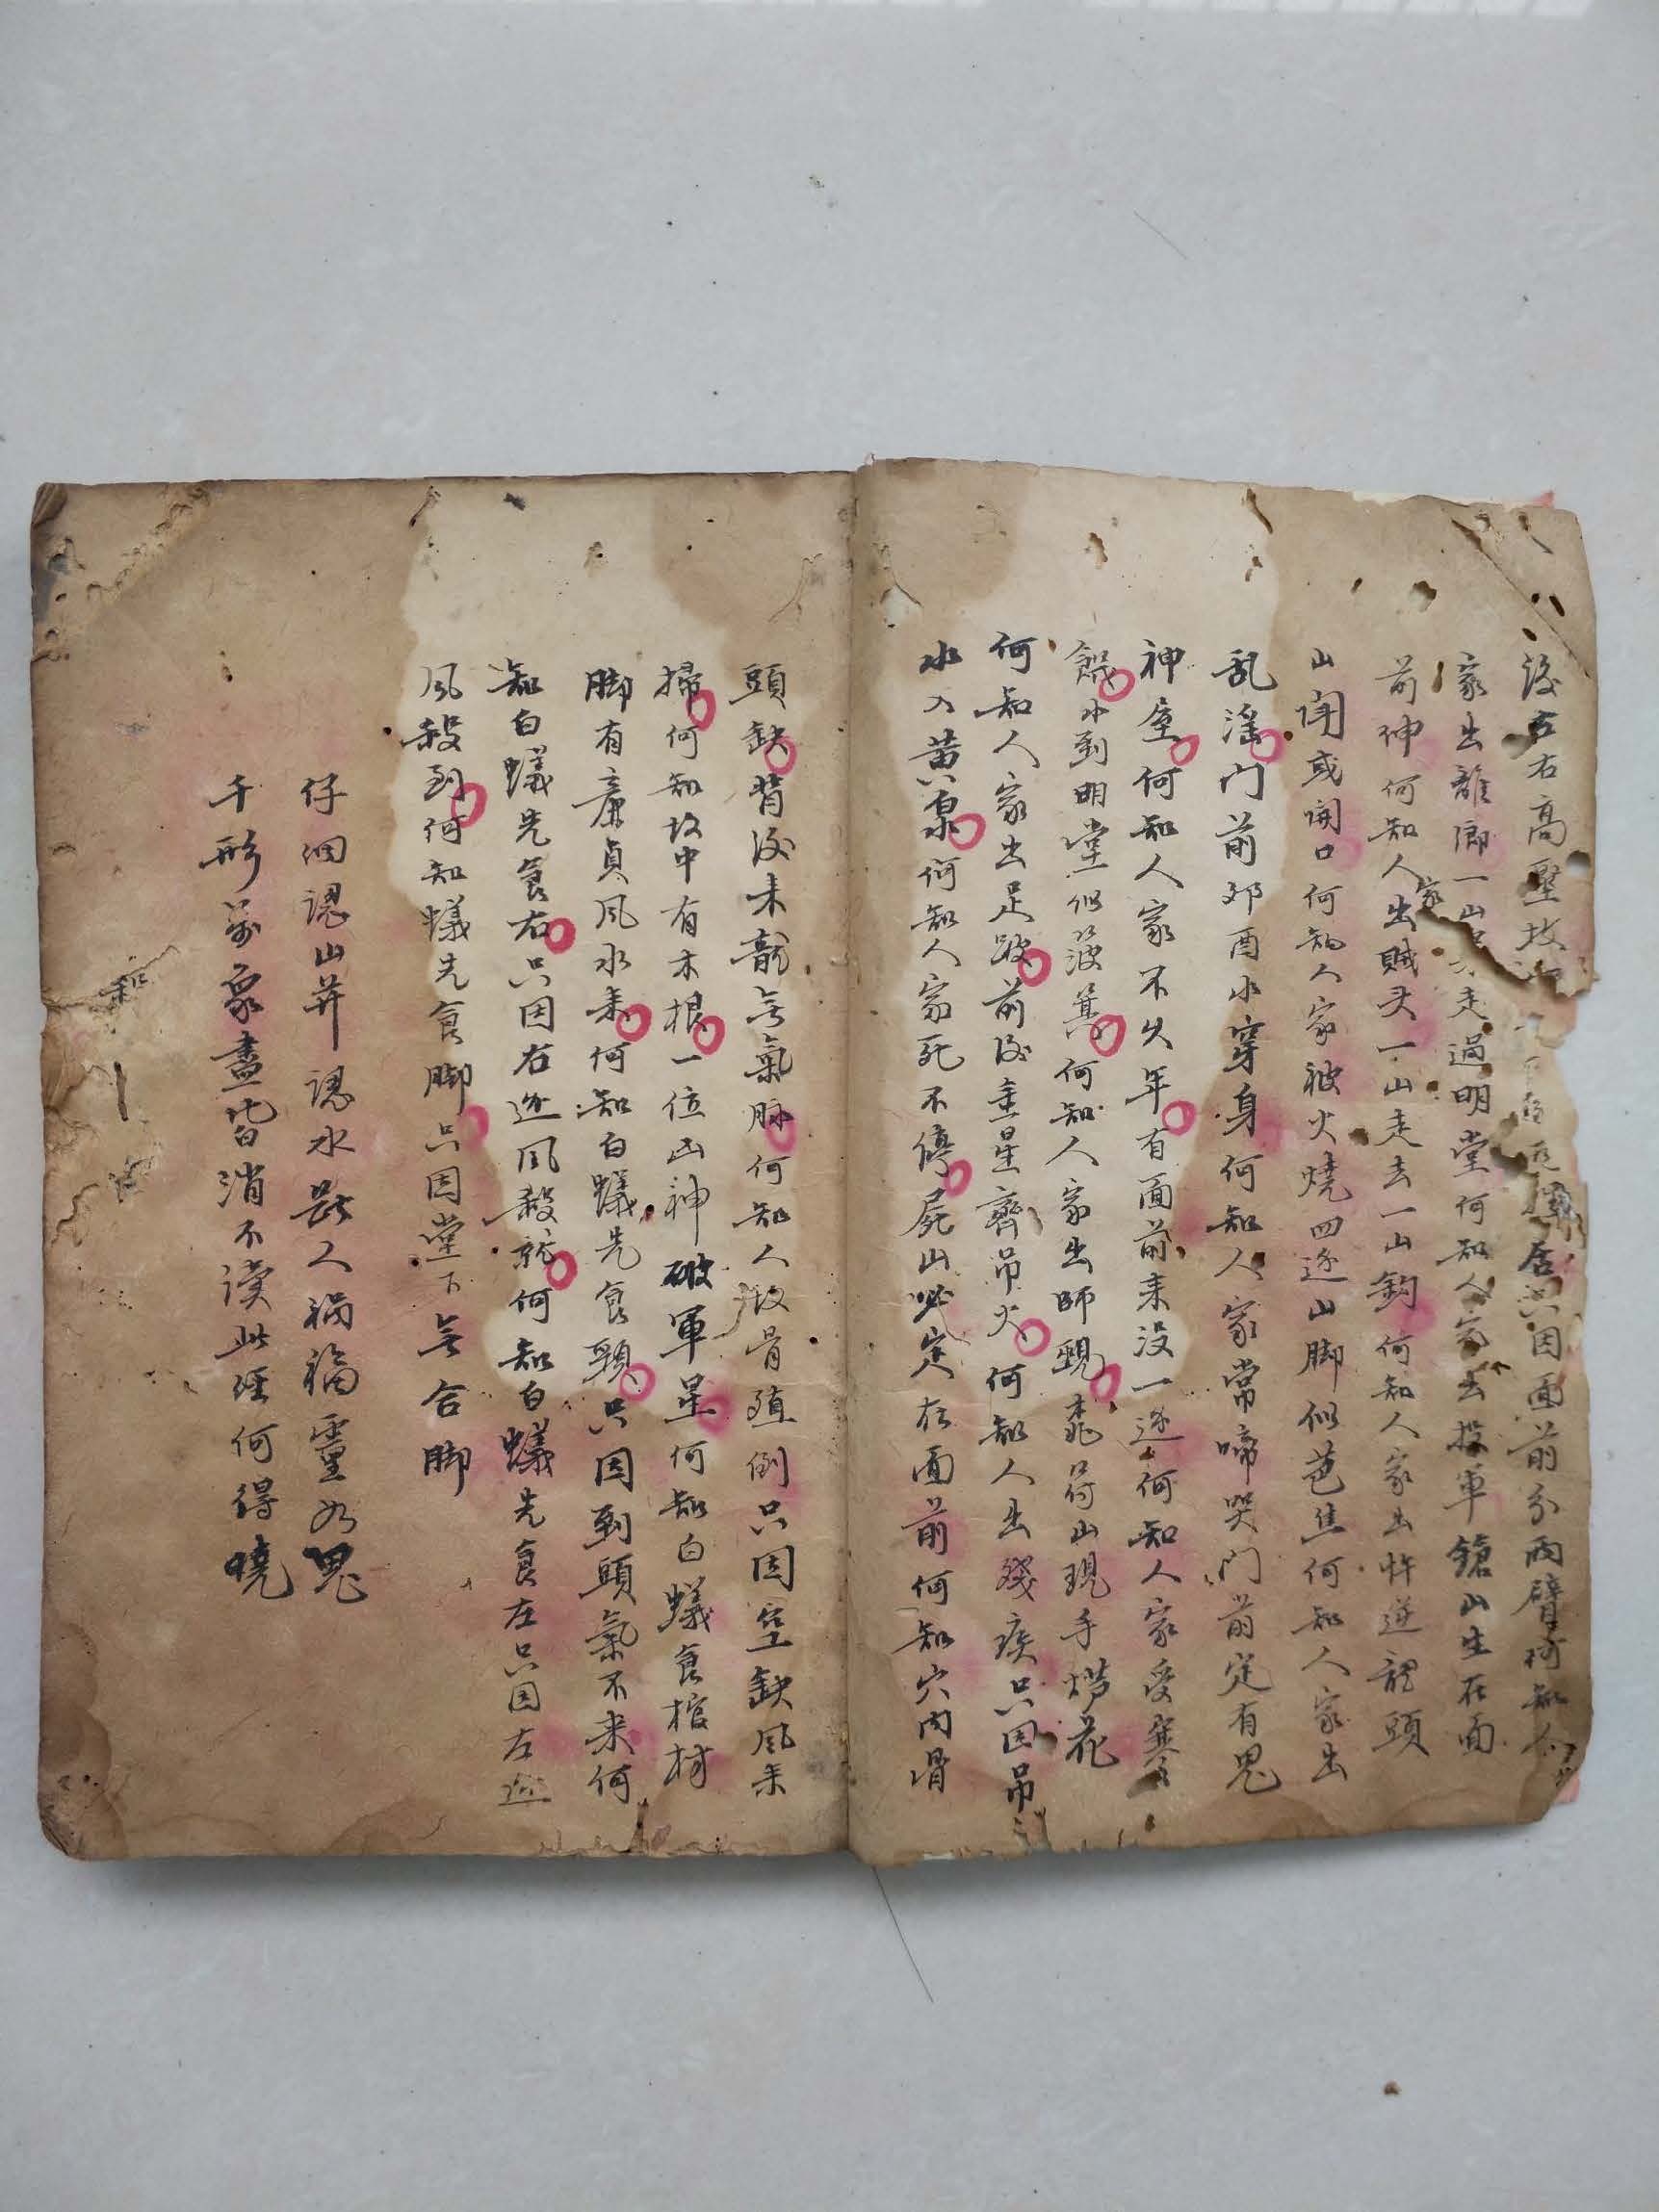 後左右高壓坟 居只因面前分兩臂何知人
家出離鄉一山 走過明堂何知人家出投軍鎗山生在面
前伸何知人家出賊头一山走去一山鈎何知人家出忤逆龍頭
山閗或開口何知人家被火燒四边山脚似芭焦何知人家出
乱淫門前邜酉水穿身何知人家常啼哭門前定有鬼
神屋何知人家不久年有面前来没一边何知人家受寒
餓水到明堂似簸箕何知人家出師 符山現手 花
何知人家出足跛前後 星齊吊火何知人出殘疾只因吊
水入黄泉何知人家死不停屍山必定在面前何知穴内骨
頭缺背後来龍无氣脉何知人坟骨 倒只因空缺風来
掃何知坟中有木根一位凶神破軍星何知白蟻食棺材
脚有廉貞風水来何知白蟻先食頸只因到頭氣不来何
知白蟻先食右只因右边風殺就何知白蟻先食左只因左边
風殺到何知蟻先食脚只因堂下无合脚
仔细認山并認水 人禍福靈如鬼
千形萬象盡皆消不读此经何得曉